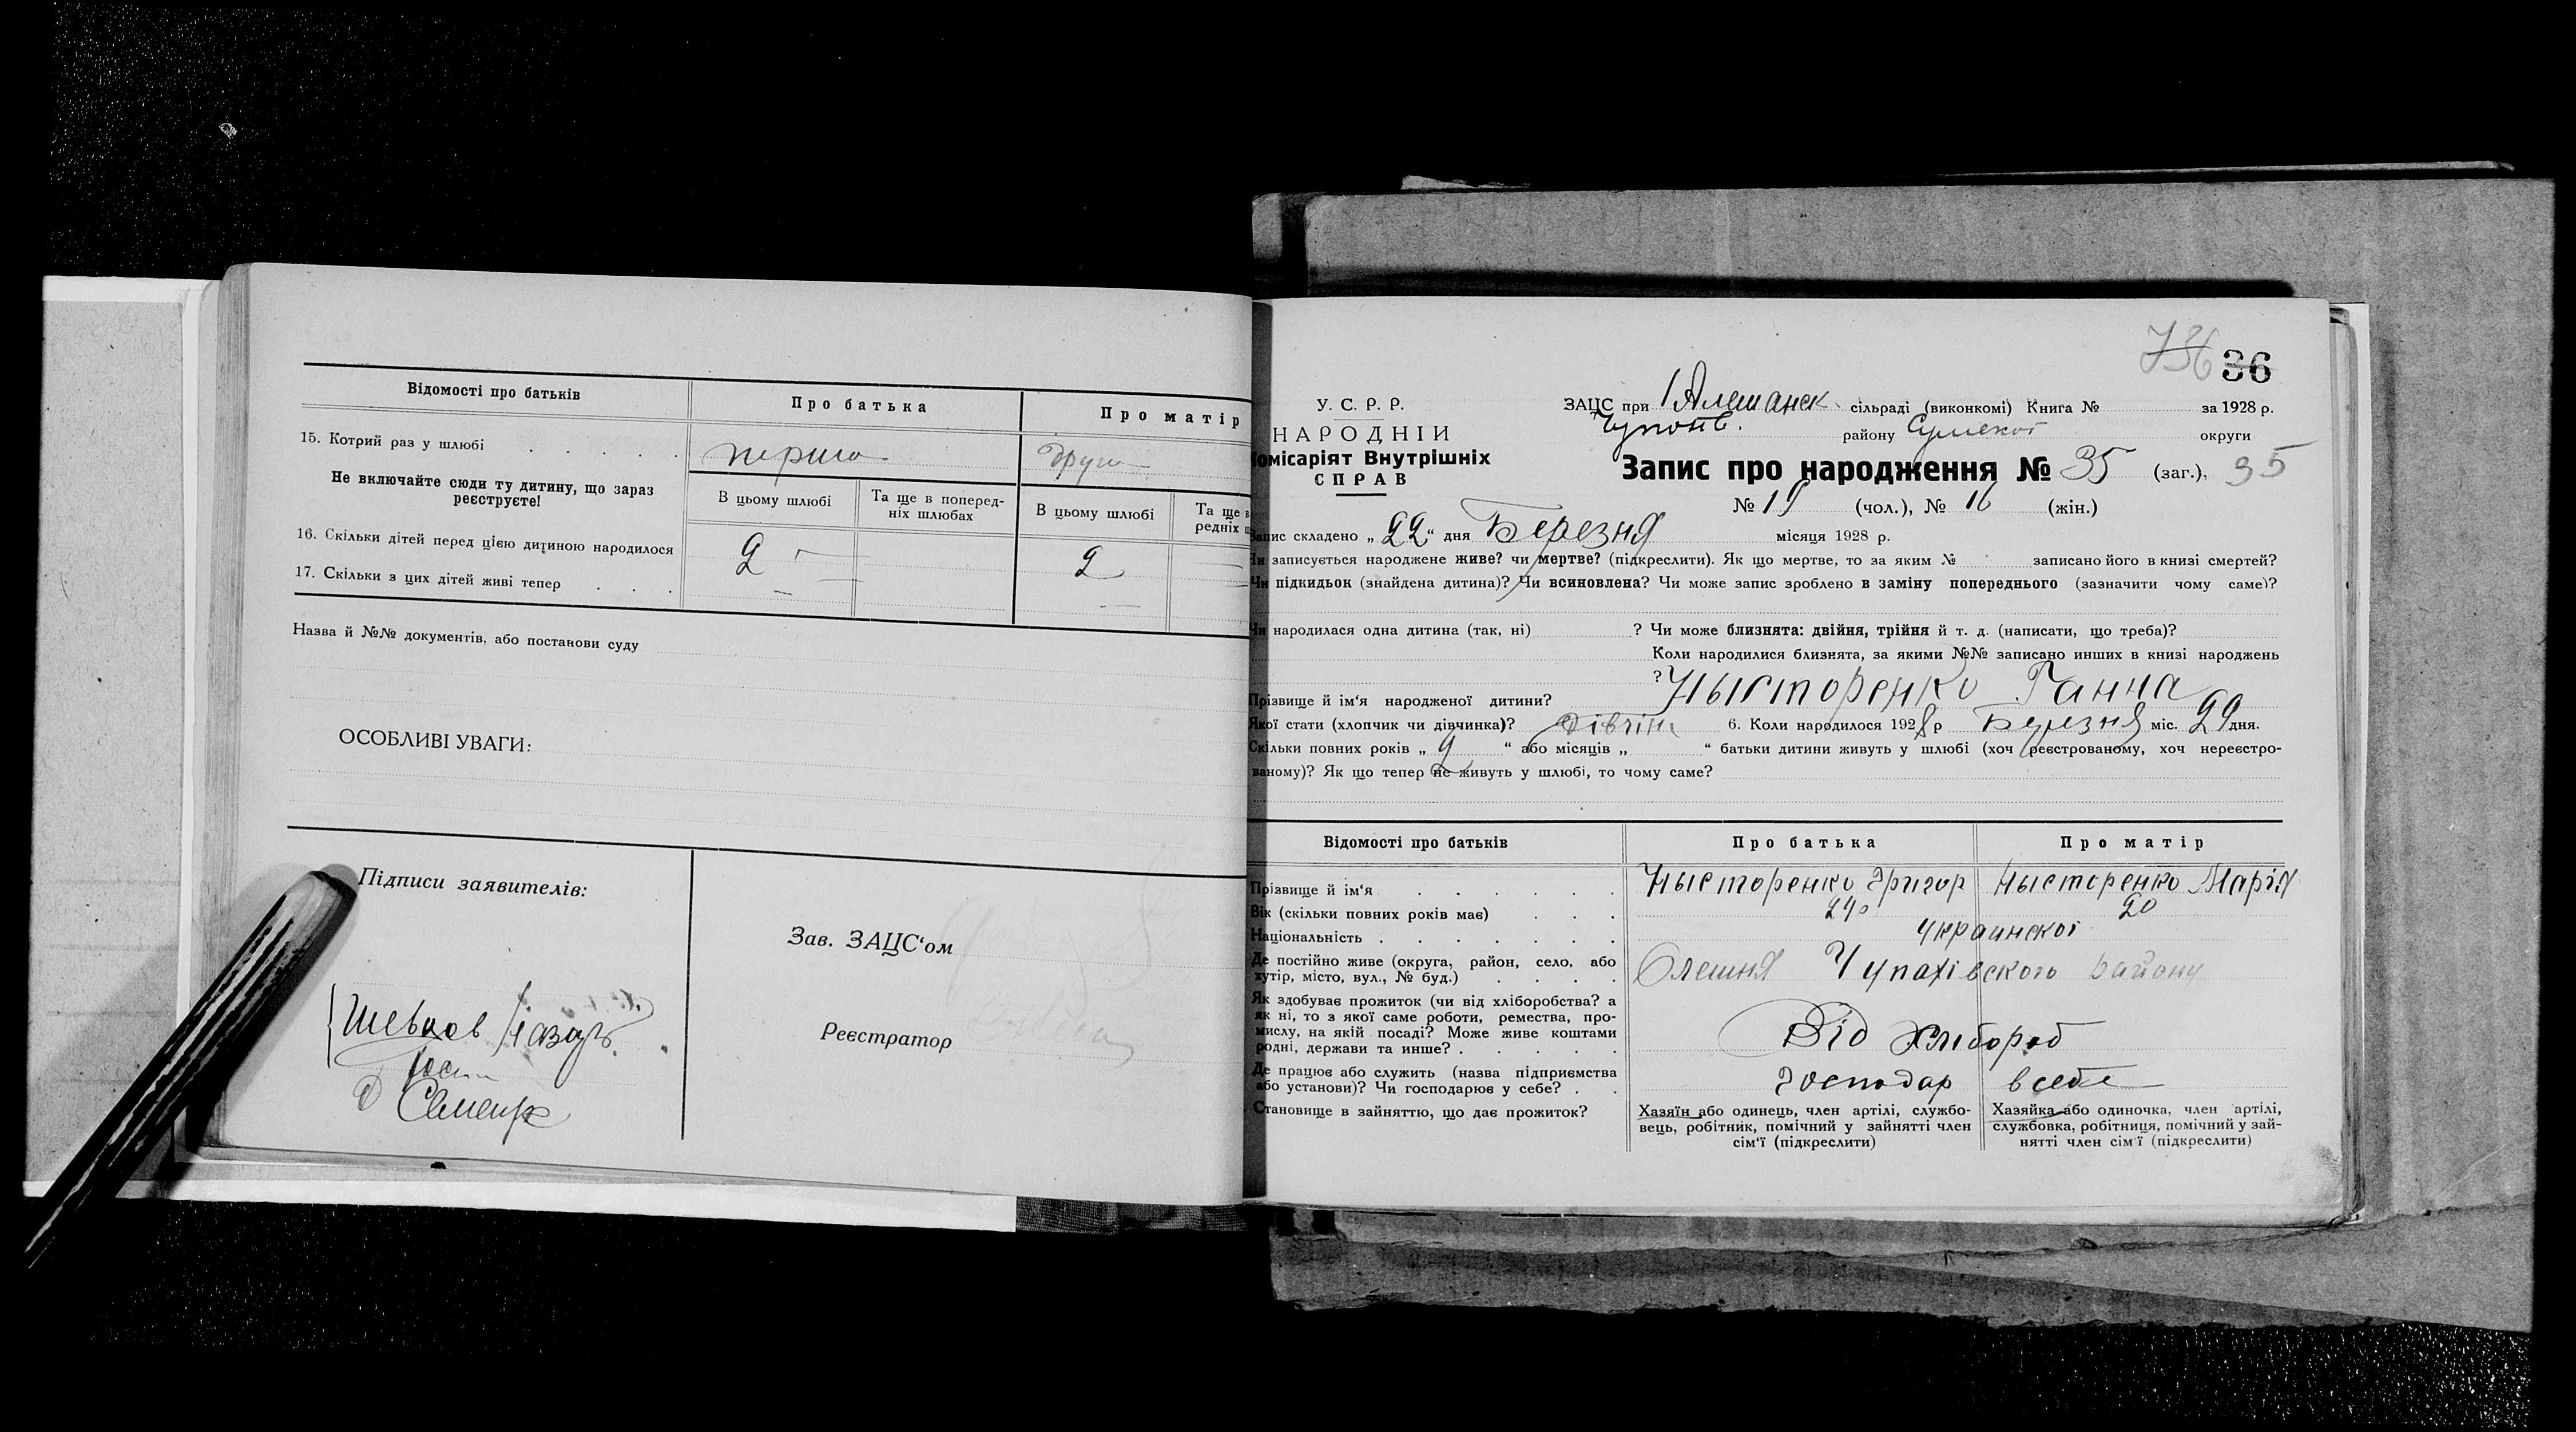 Відомості про батьків
Про батька
Про матір
15. Котрий раз у шлюбі
перша
друга
Не включайте сюди ту дитину, що зараз
реєструєте!
В цьому шлюбі
Та ще в поперед-
ніх шлюбах
В цьому шлюбі
Та ще в
редніх
16. Скільки дітей перед цією дитиною народилося
2 —
2
17. Скільки з цих дітей живі тепер
—
—
Назва й №№ документів, або постанови суду
ОСОБЛИВІ УВАГИ:
Підписи заявителів:
Зав. ЗАЦС‘ом
Реєстратор
Шевцов Назар
736 36
У. С. Р. Р.
НАРОДНІЙ
Комісаріят Внутрішніх
СПРАВ
ЗАЦС при 1 Алешанск сільраді (виконкомі) Книга № за 1928 р.
району Сумской округи
Запис про народження № 35 (заг.), 35
№ 19 (чол.), № 16 (жін.)
Запис складено „ 22 “ дня Березня місяця 1928 р.
Чи записується народжене живе? чи мертве? (підкреслити). Як що мертве, то за яким № записано його в книзі смертей?
Чи підкидьок (знайдена дитина)? Чи всиновлена? Чи може запис зроблено в заміну попереднього (зазначити чому саме)?
Чи народилася одна дитина (так, ні) ? Чи може близнята: двійня, трійня й т. д. (написати, що треба)?
Коли народилися близнята, за якими №№ записано инших в книзі народжень
?
Прізвище й ім‘я народженої дитини? Нысторенко Ганна
Якої стати (хлопчик чи дівчинка)? Дівчіна 6. Коли народилося 1928 р Березня міс. 22 дня.
Скільки повних років „ 2 “ або місяців „ “ батьки дитини живуть у шлюбі (хоч реєстрованому, хоч нереєстро-
ваному)? Як що тепер не живуть у шлюбі, то чому саме?
Відомості про батьків
Про батька
Про матір
Прізвище й ім‘я
Нысторенко Григор
Нысторенко Марія
Вік (скільки повних років має)
20
Національність
Украинскої
Де постійно живе (округа, район, село, або
хутір, місто, вул., № буд.)
Олешня Чупахівского району
Як здобуває прожиток (чи від хліборобства? а
як ні, то з якої саме роботи, ремества, про-
мислу, на якій посаді? Може живе коштами
родні, держави та инше?
Від Хлибороб
Де працює або служить (назва підприємства
або установи)? Чи господарює у себе?
Господар в себе
Становище в зайняттю, що дає прожиток?
Хазяїн або одинець, член артілі, службо-
вець, робітник, помічний у зайнятті член
сім‘ї (підкреслити)
Хазяйка або одиночка, член артілі,
службовка, робітниця, помічний у зай-
нятті член сім‘ї (підкреслити)